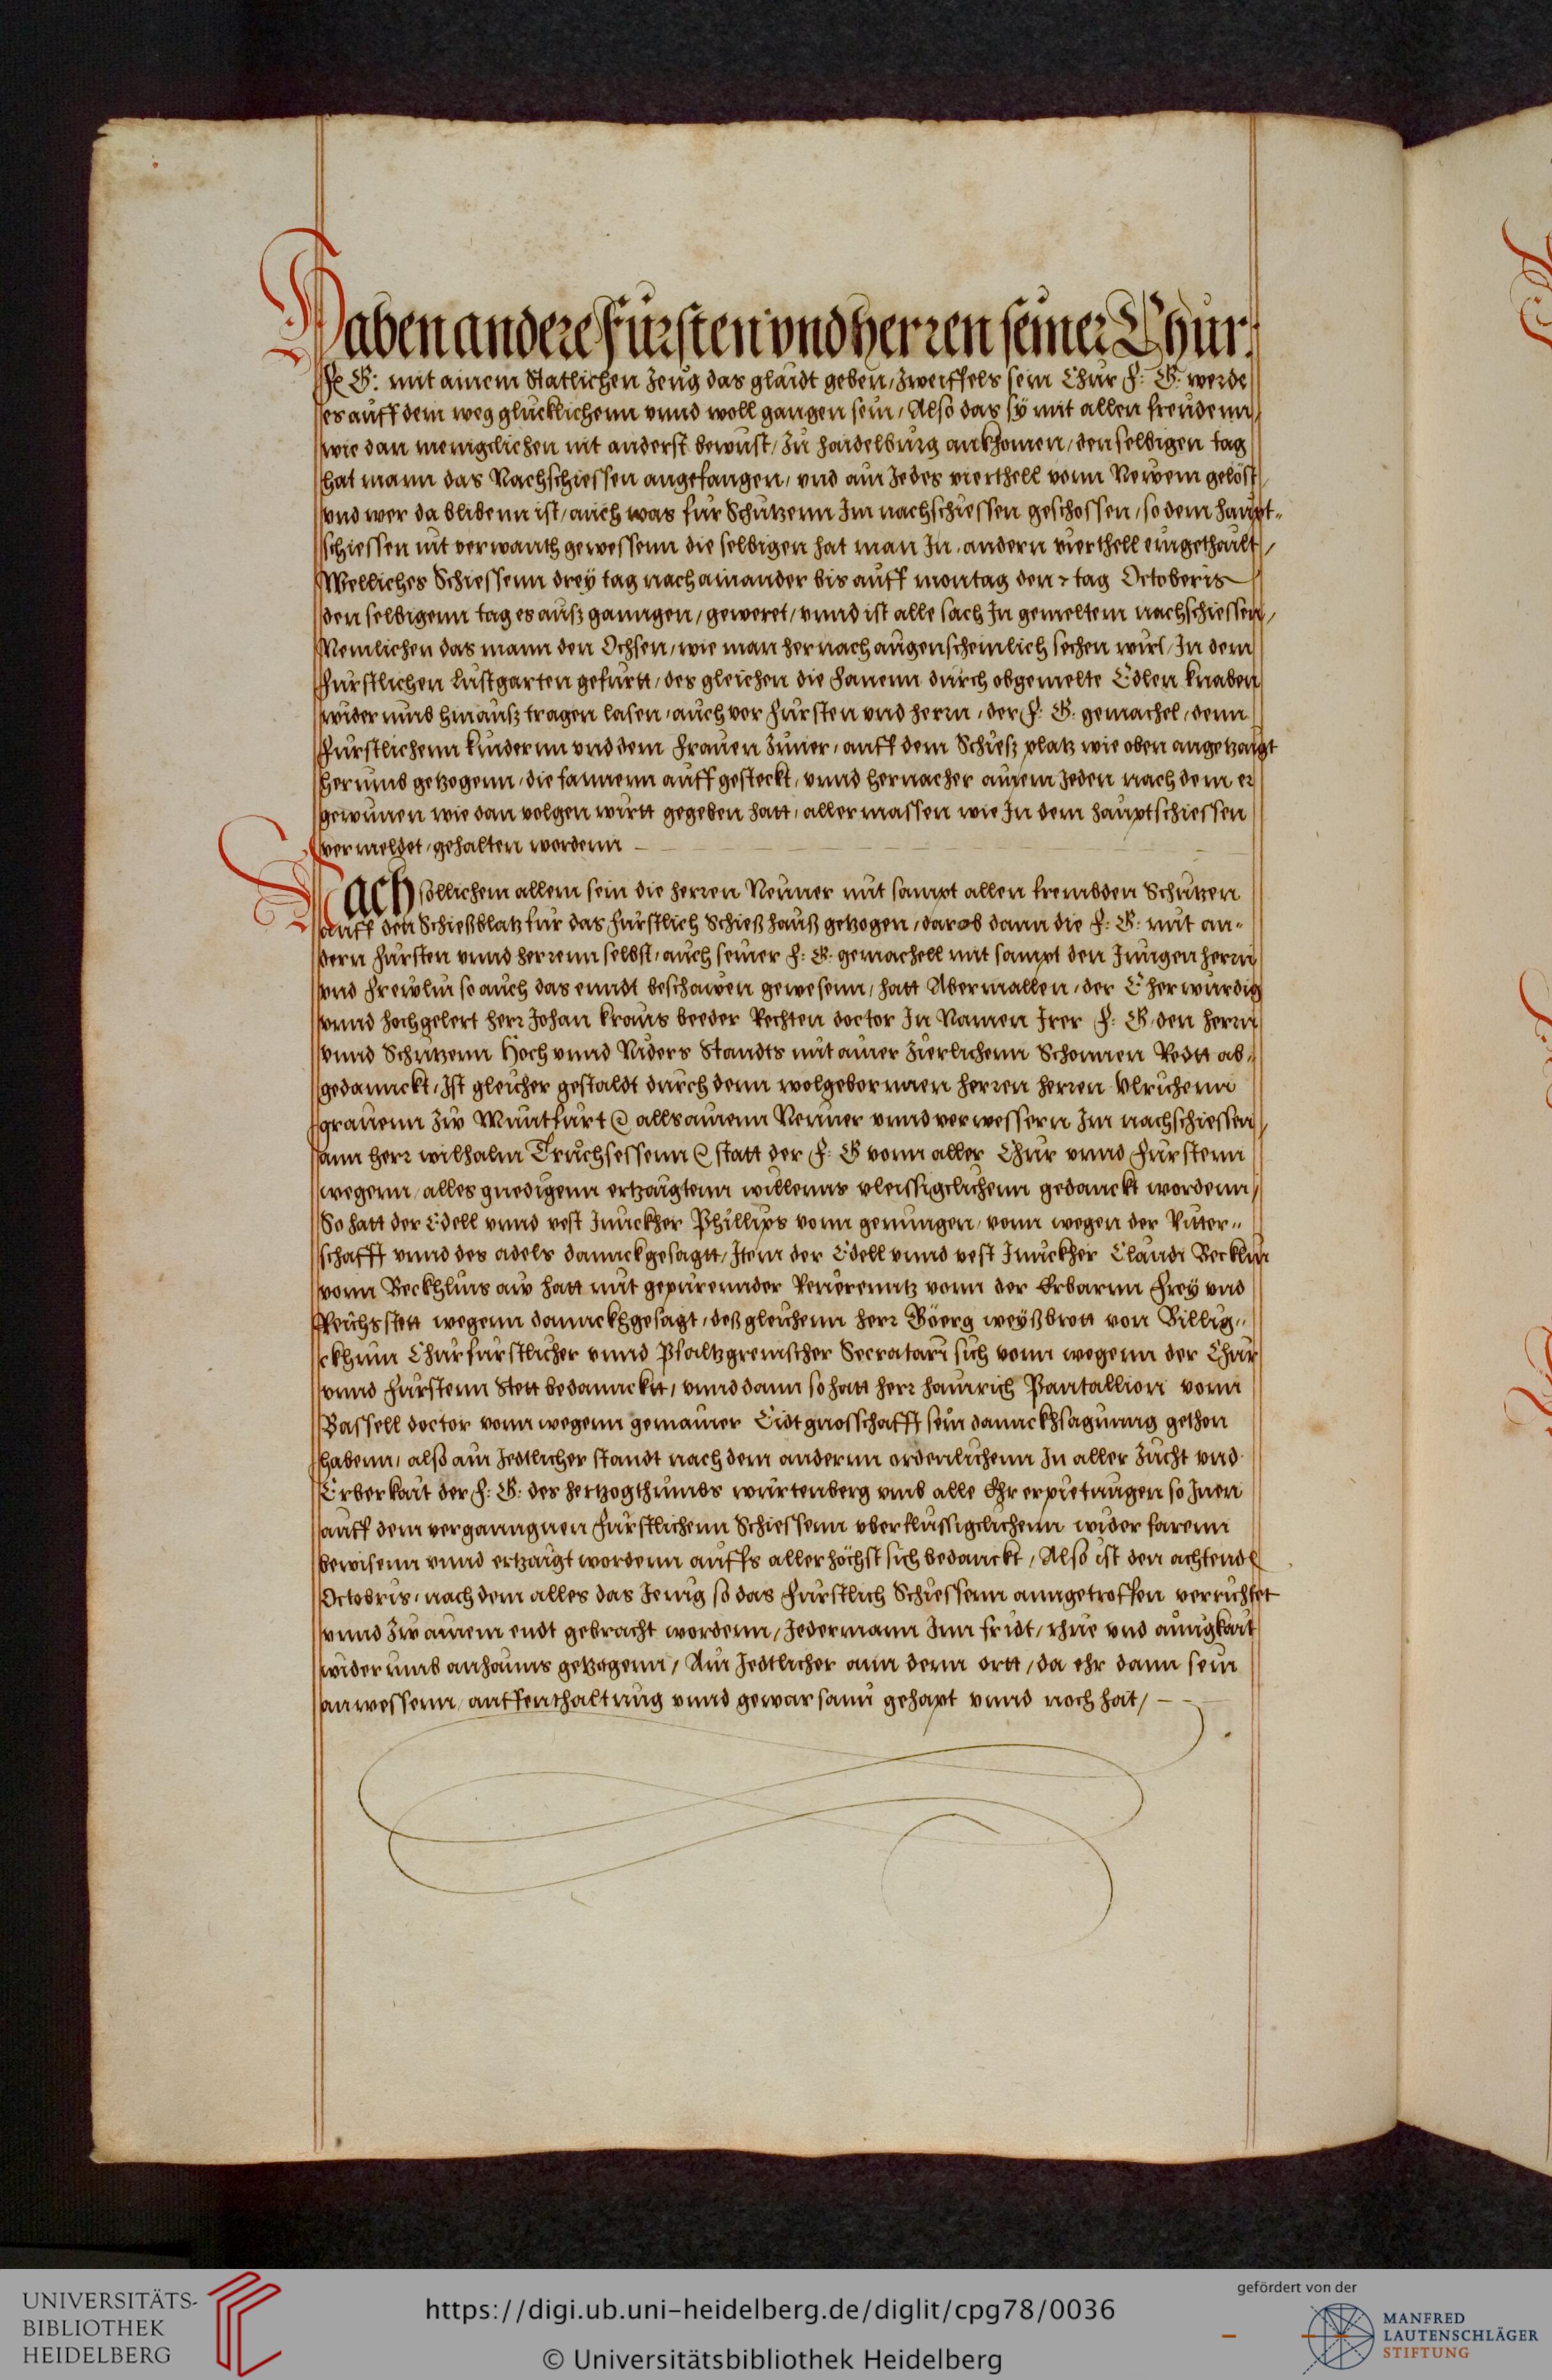 Haben andere Fürsten vnd herren seiner Chur.
F: G: mit ainem Statlichen Zeug das glaidt geben, Zweiffels sein Chur F: G: werde
es auff dem weg glucklichenn vnnd woll gangen sein, Also das sÿ mit allen freudenn,
wie dan menigclichen nit anderst bewust, Zu haidelburg ankhomen, denselbigen tag
hat mann das Nachschiessen angefangen, vnd ain Jedes vierthell vonn Newem gelöst,
vnd wer da blibenn ist, auch was für Schutzenn Im nachschiessen geschossen, so dem haupt„
schiessen nit verwanth gewessenn die selbigen hat man In andern vierthell eingethailt,
Welliches Schiessenn dreÿ tag nach ainander bis auff montag den 7 tag Octoberis
den selbigenn tag es ausz ganngen, geweret, vnnd ist alle sach In gemeltem nachschiessen,
Nemlichen das mann den Ochsen, wie man hernach augenscheinlich sechen wirt, In dem
Furstlichen Lustgarten gefurtt, des gleichen die Fanenn durch obgemelte Edlen knaben
widerumb hinausz tragen lasen, auch vor Fursten vnd herrn, der F: G: gemachel, denn
Furstlichenn kindernn vnd dem Frauen Zimer, auff dem Schiesz platz wie oben angetzaigt
herumb getzogenn, die fannenn auff gesteckt, vnnd hernacher ainem Jeden nach dem er
gewunen wie dan volgen wirtt gegeben hatt, aller massen wie In dem hauptschiessen
vermeldet, gehalten wordenn
Nach söllichem allem sein die herren Neuner mit sampt allen frembden Schutzen
auff den Schießblatz fur das Furstlich Schieß hauß getzogen, darob dann die F: G: mit an-
dern Fursten vnnd herrenn selbst, auch seiner F: G: gemachell mit sampt den Jungen herrn
vnd Frewlin so auch das enndt beschawen gewesenn, hatt Abermallen, der Eherwurdig
vnnd hochgelert herr Johan kraus beeder Rechten doctor In Namen Irer F: G: den herrn
vnnd Schutzenn Hoch vnnd Niders Standts mit ainer Zierlichenn Schonnen Redtt ab„
gedannckt, Ist gleicher gestaldt durch denn wolgebornnen herren herren Vlrichenn
grauenn Zw Muntfurt &c allsainenn Neuner vnnd verwessern Im nachschiessen,
ann herr wilhalm Truchsessenn &c statt der F: G vonn aller Chur vnnd Furstenn
wegenn, alles gnedigenn ertzaigtenn willenns vleissigclichenn gedanckt wordenn,
So hatt der Edell vnnd vest Junckher Phillips vonn gemingen, vonn wegen der Ritter„
schafft vnnd des adels dannckgesagtt, Item der Edell vnnd vest Junckher Claudi Becklin
vonn Beckhlins aw hatt mit gepurennder Reuerenntz vonn der Erbarnn Freÿ vnd
Reichsstett wegenn dannckhgesagt, deßgleichenn herr Göerg weÿßbrott von Billig„
ckhim Churfurstlicher vnnd Pfaltzgreuischer Secratari sich vonn wegenn der Chur
vnnd Furstenn Stett bedannckt, vnnd dann so hatt herr hainrich Pantallion vonn
Bassell doctor vonn wegenn gemainer Eidtgnosschafft sein dannckhsagunng gethon
habenn, also ain Jedtlicher standt nach dem andernn ordenlichenn In aller Zucht vnd
Erberkait der F: G: des hertzogthumbs wurtenberg vmb alle Ehr erpietungen so Inen
auff dem verganngnen Furstlichenn Schiessenn vberflussigclichenn wider farenn
bewisenn vnnd ertzaigt wordenn auffs aller höchst sich bedanckt, Also ist den achtende
Octobris, nach dem alles das Jenig so das Furstlich Schiessenn anngetroffen verrichtet
vnnd Zw ainem endt gebracht wordenn, Jedermann Inn fridt, rhue vnd ainigkait
widerumb anhaims getzogenn, Ain Jedtlicher ann denn ortt, da ehr dann sein
anwessenn, auffenthaltung vnnd gewarsami gehapt vnnd noch hat,
UNIVERSITÄTS-
BIBLIOTHEK
HEIDELBERG
https://digi.ub.uni-heidelberg.de/diglit/cpg78/0036
© Universitätsbibliothek Heidelberg
gefördert von der
MANFRED
LAUTENSCHLÄGER
STIFTUNG